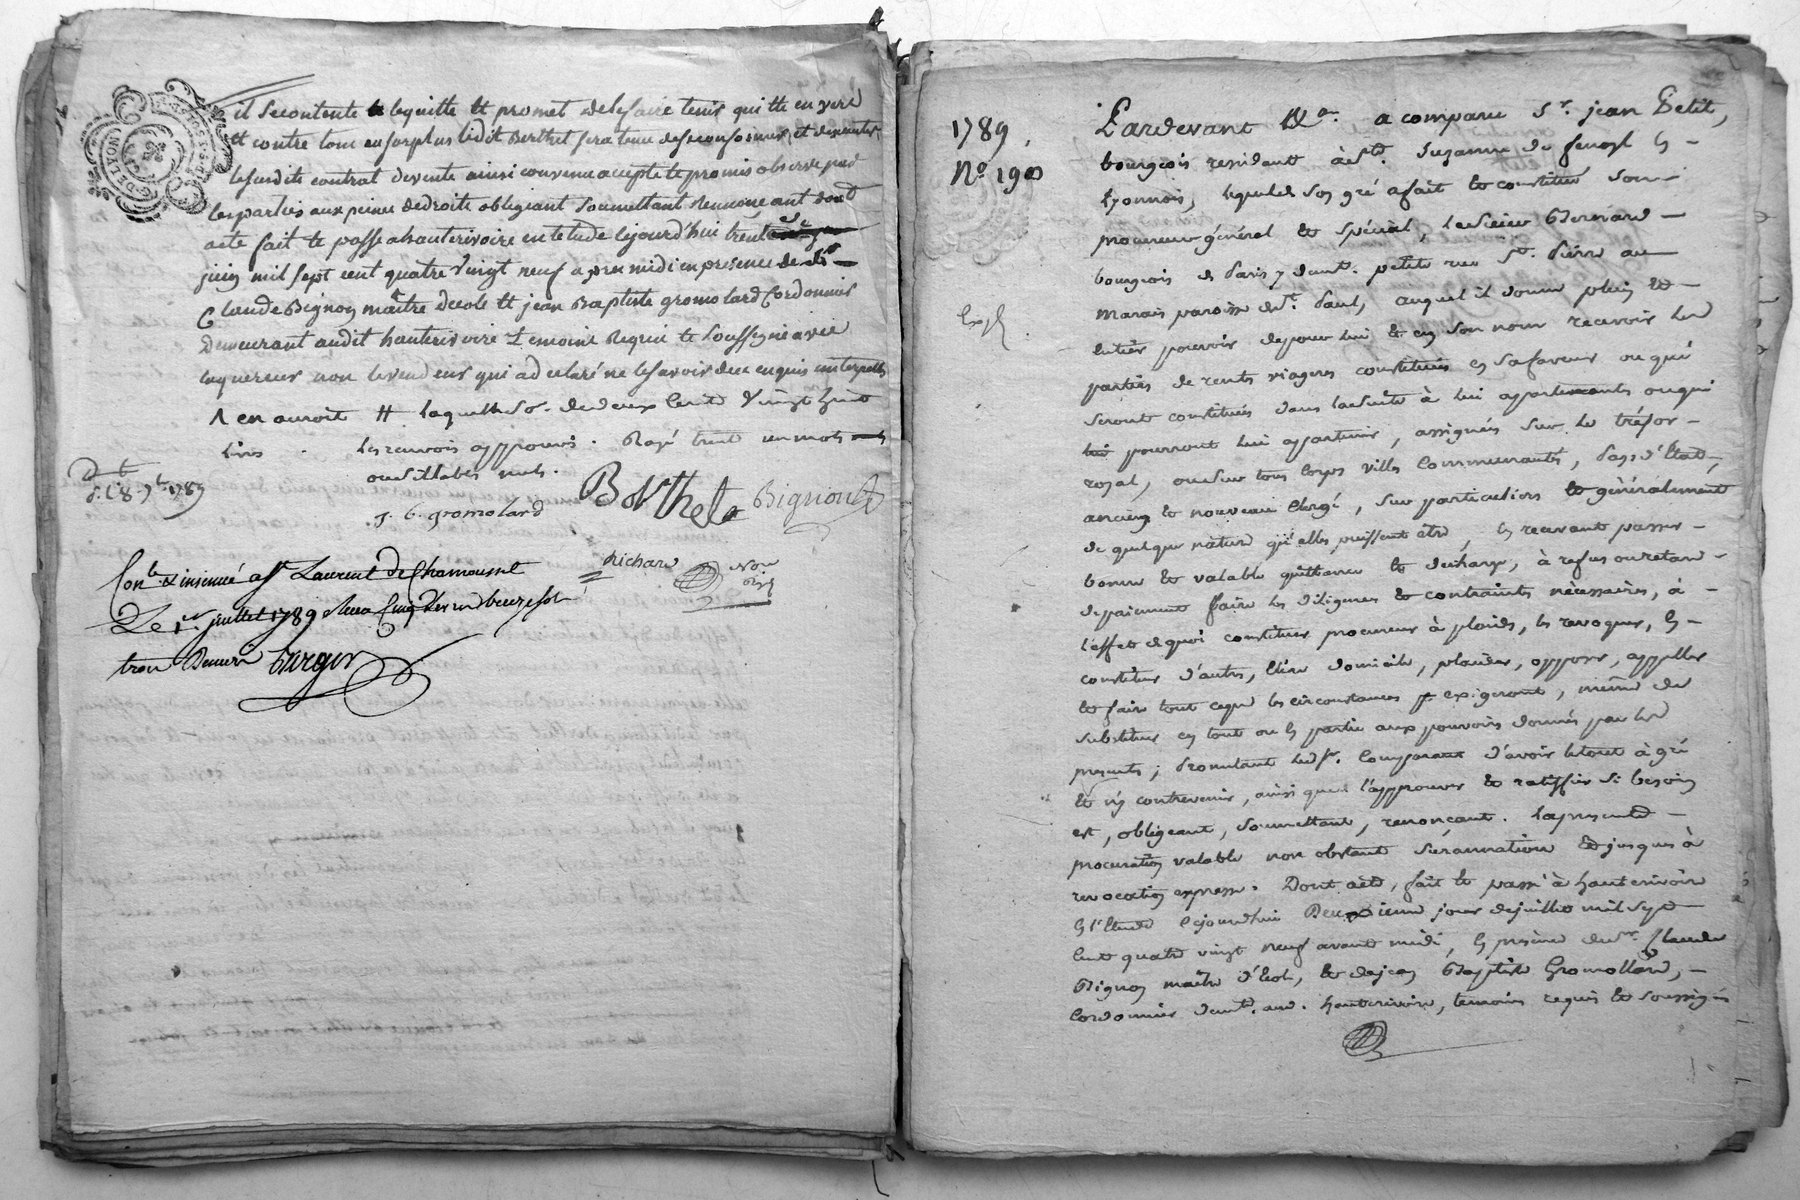 il se contente le quitte et promet de le faire tenir quitte envers
et contre tous au surplus ledit Berthet sera tenu de se conformer et
les susdite contrat de vente ainsi convenu accepte et promis observe par
les parties aux peines de droite obligeant soumettant Renonceant dont
acte fait et passe a hauterivoire en letude le jourd'hui trente
juin mil sept cent quatre vingt neuf apres midi en presence de
Claude Bignon maître decole et jean Baptiste gromolard Cordonnier
Demeurant audit hauterivoire temoins Requis et soussigne avec
laquereur non le vendeur qui a declaré ne le savoir de ce enquis
en auroit # laquelle so. de deux cents vingt huit
livres les renvois approuvés. Rayé trent un mots
ou sillabes nuls.
1789
j. b. gromolard
Berthet
Bignon
Richard
Con.le & insinué a St Laurent de Chamousset
Le 1er juillet 1789 Reçu
trois Deniers Burgos
LYON
1789
No. 190
Expé
Pardevant Me. a comparu Sr. jean Petit,
bourgeois residant à Ste. Suzanne de fenoyl en
Lyonnois, lequel de son gré a fait et constitué son
procureur général et spécial, le sieur Bernard
bourgeois de Paris y demt. petite rue St. Pierre au
marais paroisse de St. Paul, auquel il donne plein et
entier pouvoir de pour lui et en son nom recevoir les
parties de rentes viageres constituées en sa faveur ou qui
seront constituées dans la suite à lui appartenants ou qui
pourront lui appartenir, assignées sur le trésor
royal, ou sur tous corps villes communautés, Pays d'Etat,
ancien et nouveau clergé, sur particuliers et généralement
de quelque nature qu'elles puissent etre, en recevant passer
bonne et valable quittance et decharge, à refus ou retard
de paiement faire les diligences et contraintes nécessaires, à
l'effet de quoi constituer procureur à plaids, les revoquer, en
constituer d'autres, élire domicile, plaider, opposer, appeller
et faire tout ce que les circonstances exigeront, même de
substituer en tout ou en partie aux pouvoirs donnés par les
presents; Promettant led. sr. Comparant d'avoir le tout à gré
et n'y contrevenir, ainsi que de l'approuver et ratiffier si besoin
est, obligeant, soumettant, renonçant. La presente
procuration valable non obstant surannation et jusques à
revocation expresse. Dont acte, fait et passé à hauterivoire
en l'Etude le jourd'hui Deuxieme jour de juillet mil sept
cent quatre vingt neuf avant midi, en présence du sr. Claude
Bignon maître d'école, et de jean Baptiste Gromollard,
cordonnier demt. aud. hauterivoire, temoins requis et soussignés